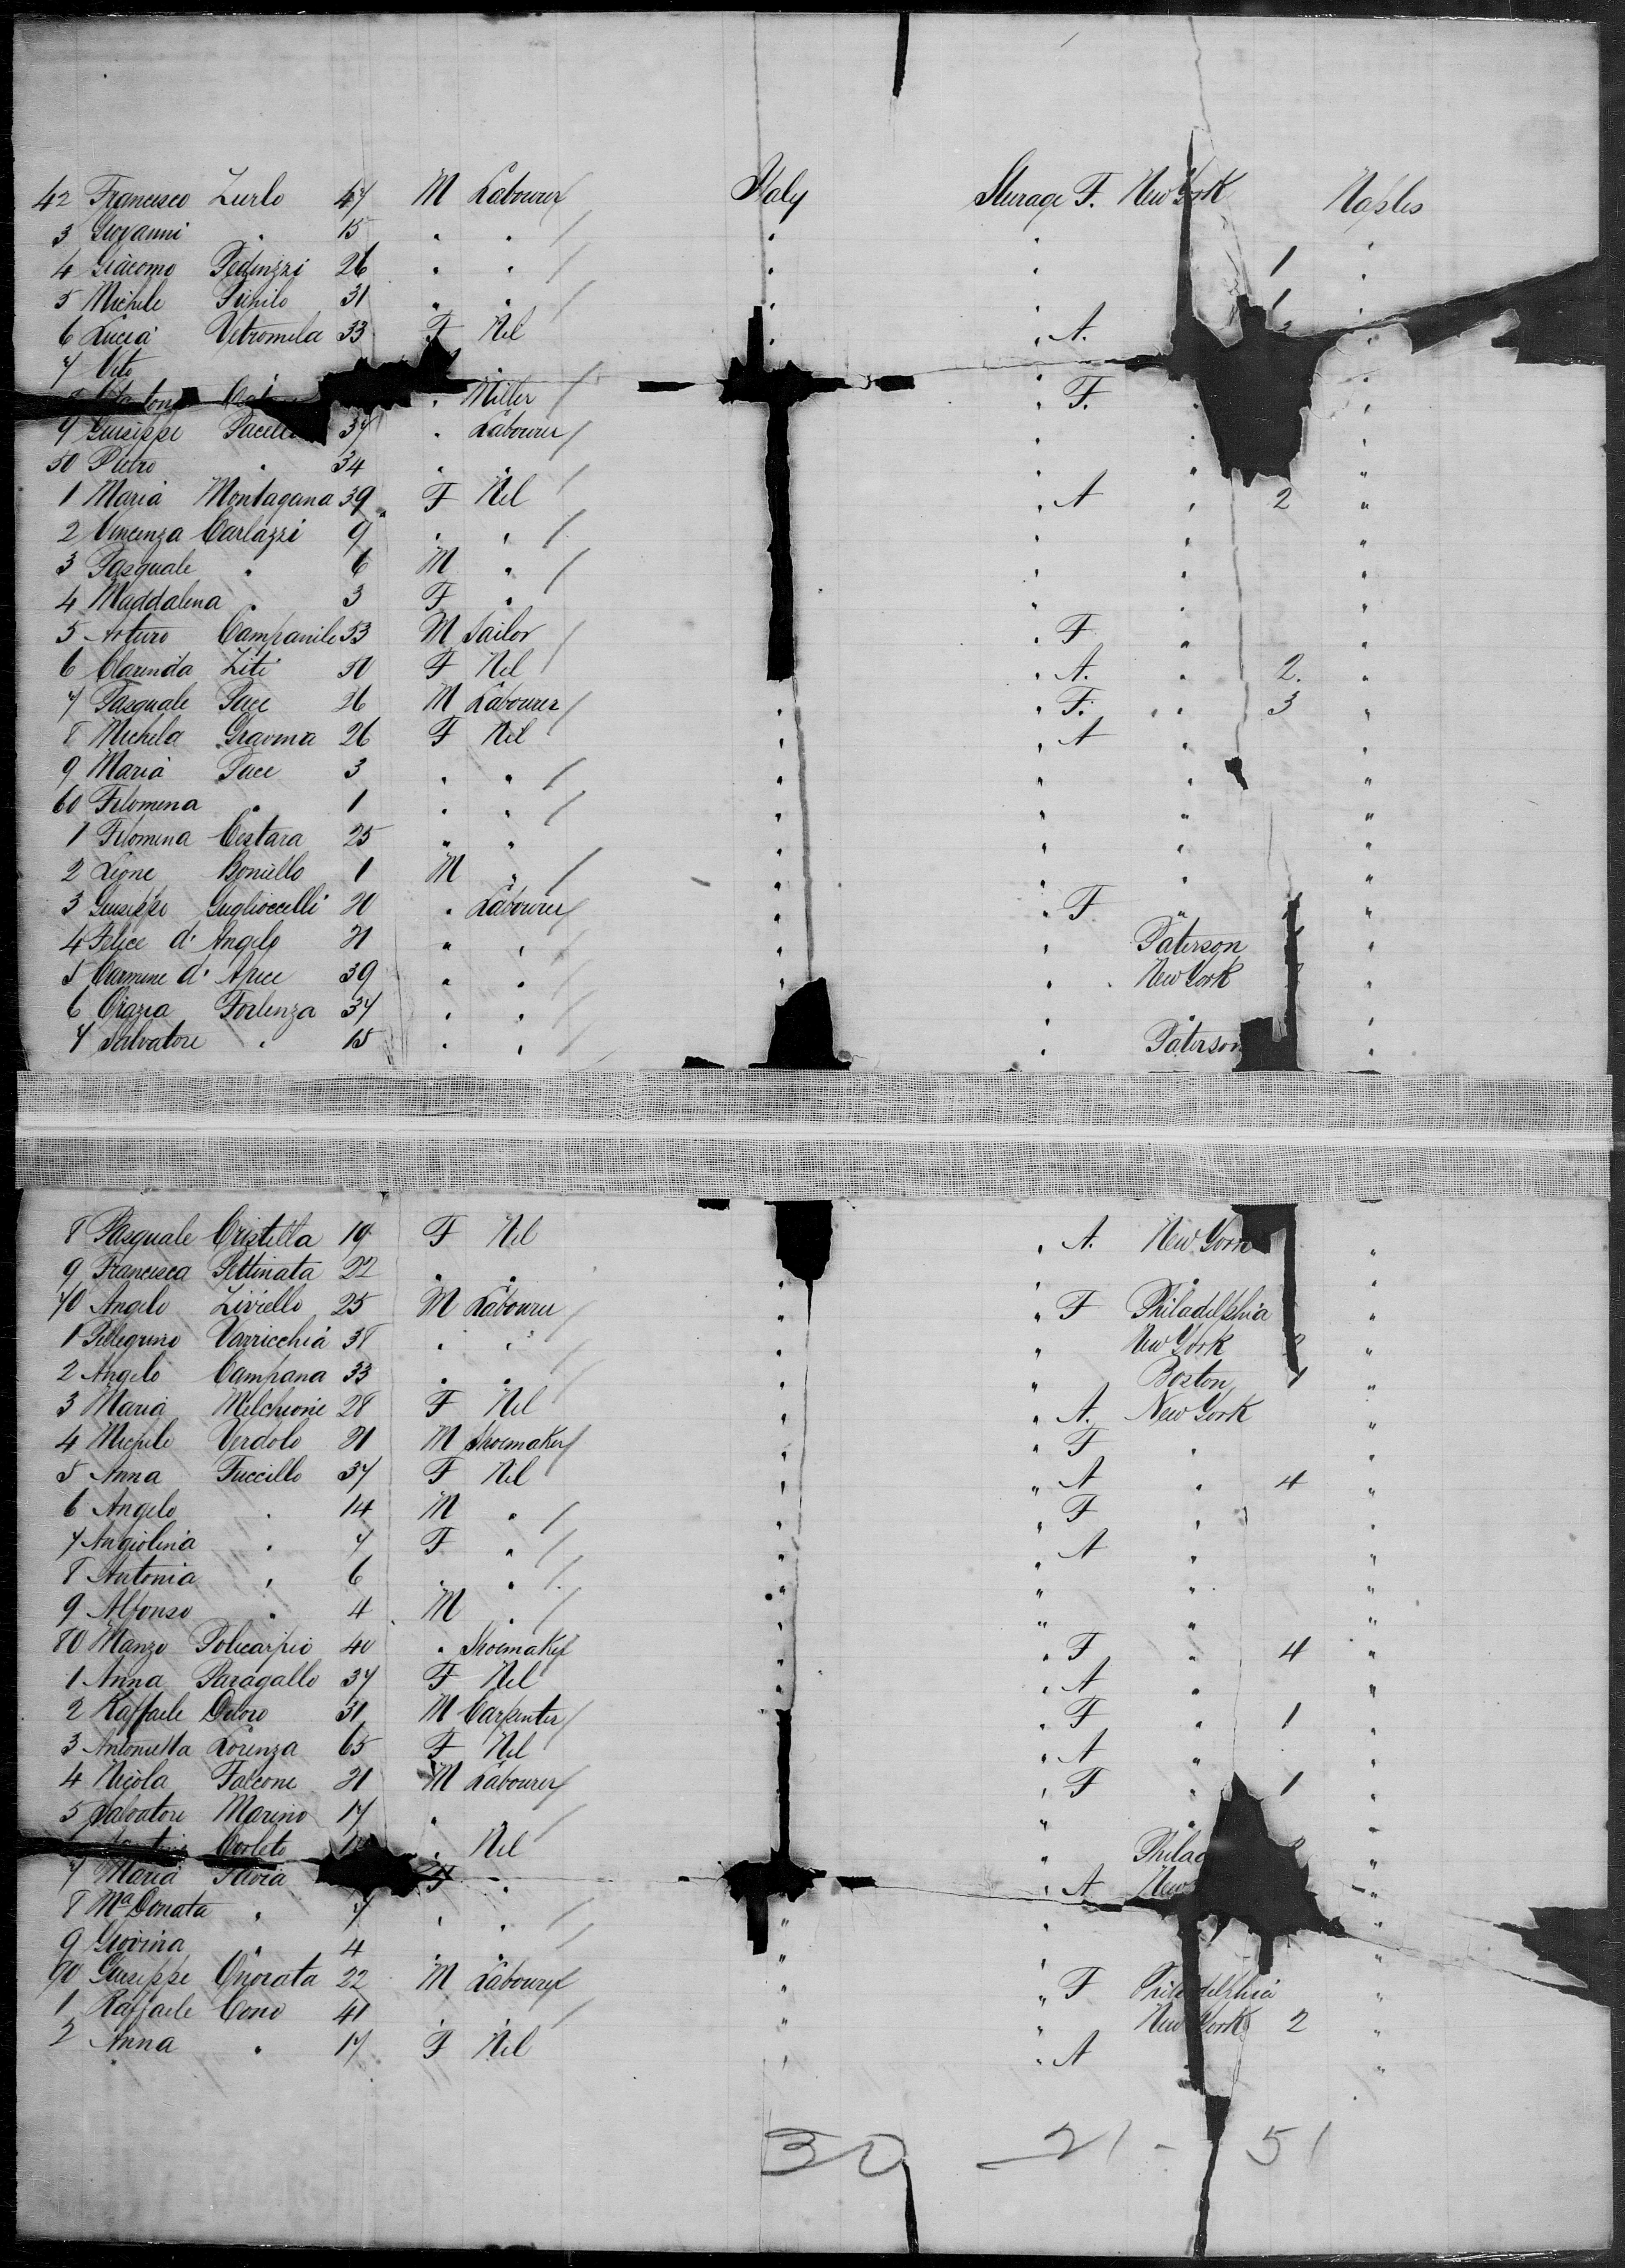 42 Francesco Zurlo 47 M Labourer Italy Sturage F. New York Naples
3 Giovanni " 15 " " " " "
4 Giacomo Pedinzzi 26 " " " " 1 "
5 Michele 31 " " " " 1 "
6 Lucia Vetromila 33 F Nil " " A. "
7 Vito
Miller " F. " "
9 Giuseppe 37 " Labourer " " "
50 Pietro " 34 " " " " "
1 Maria Montagana 39 F Nil " A " 2 "
2 Vincenza Carlazzi 9 " " " " "
3 Pasquale " 6 M " " " "
4 Maddalena " 3 F " " " "
5 Arturo Campanile 53 M Sailor " F " "
6 Clarinda Ziti 30 F Nil " A. " 2. "
7 Pasquale Pace 26 M Labourer " " F. " 3 "
8 Michela Gravina 26 F Nil " " A " "
9 Maria Pace 3 " " " " " "
60 Filomena " 1 " " " " " "
1 Filomena Cestara 25 " " " " " "
2 Lione Boniello 1 M " " " " "
3 Giuseppe Guglioccelli 20 " Labourer " " F " "
4 Felice d' Angelo 21 " " " " Paterson "
5 Carmine d' Apice 39 " " " " New York "
6 Orazia Forlenza 37 " " " " "
7 Salvatore " 15 " " " Paterson "
8 Pasquale Cristella 19 F Nil " A. New York "
9 Francesca Pettinata 22 " " " " " "
70 Angelo Ziviello 25 M Labourer " " F Philadelphia "
1 Pellegrino Varricchia 38 " " " " New York "
2 Angelo Campana 33 " " " " Boston 1 "
3 Maria Melchione 28 F Nil " " A. New York "
4 Michele Verdolo 21 M Shoemaker " " F " "
5 Anna Fuccillo 37 F Nil " " A " 4 "
6 Angelo " 14 M " " " F " "
7 Angiolina " 7 F " " " A " "
8 Antonia " 6 " " " " " "
9 Alfonso " 4 M " " " " "
80 Manzo Policarpio 40 " Shoemaker " " F " 4 "
1 Anna Paragallo 37 F Nil " " A " "
2 Raffaele Deboro 31 M Carpenter " F " 1 "
3 Antonietta Lorenza 65 F Nil " A " "
4 Nicola Falcone 21 M Labourer " F " 1 "
5 Salvatore Marino 17 " " " " "
Corleto " Nil " "
7 Maria F " " A New "
8 Ma Donata " 7 " " " " "
9 Giovina " 4 " " " " "
90 Giuseppe Onorata 22 M Labourer " " F Philadelphia "
1 Raffaele Cono 41 " " " " New York 2 "
2 Anna " 17 F Nil " " A "
30 - 21 - 51